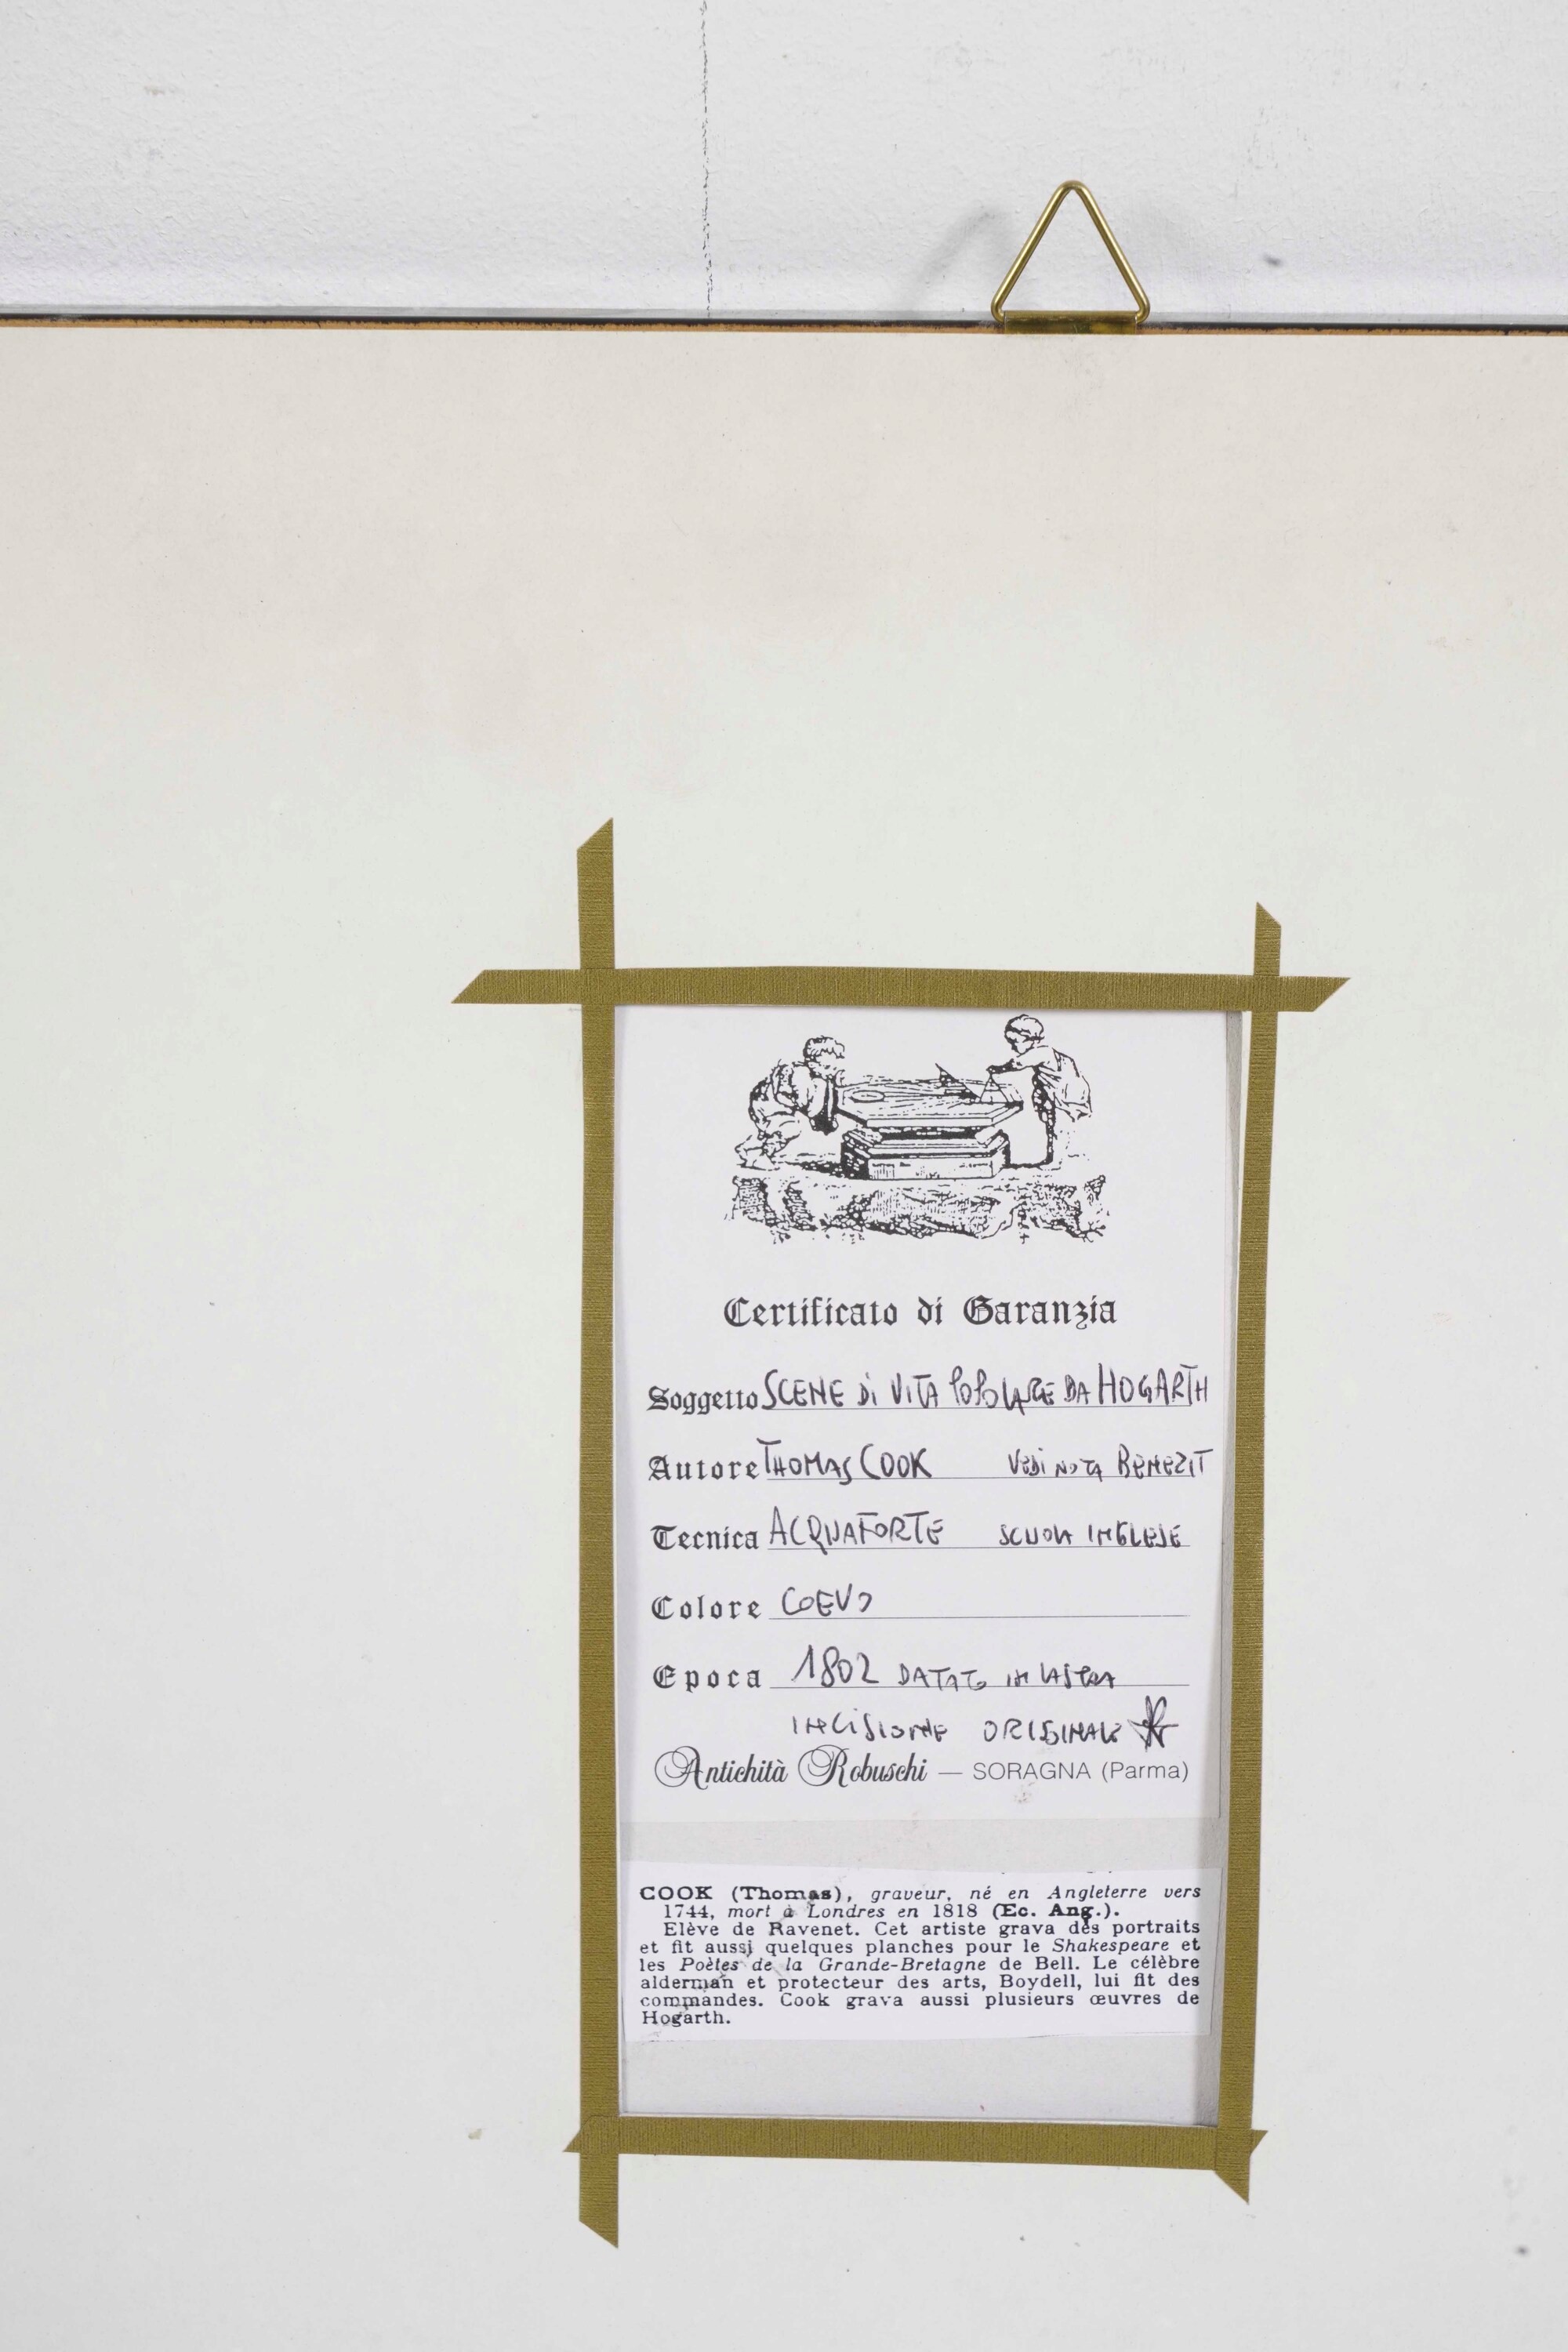 Certificato di Garanzia
Soggetto SCENE Di VITA POPOLARE DA HOGARTH
Autore THOMAS COOK VEDI NOTA BENEZIT
Tecnica ACQUAFORTE SCUOLA INGLESE
Colore COEVO
Epoca 1802 DATATO IN LASTRA
INCISIONE ORIGINALE
Antichità Robuschi — SORAGNA (Parma)
COOK (Thomas), graveur, né en Angleterre vers
1744, mort à Londres en 1818 (Ec. Ang.).
Elève de Ravenet. Cet artiste grava des portraits
et fit aussi quelques planches pour le Shakespeare et
les Poètes de la Grande-Bretagne de Bell. Le célèbre
alderman et protecteur des arts, Boydell, lui fit des
commandes. Cook grava aussi plusieurs œuvres de
Hogarth.